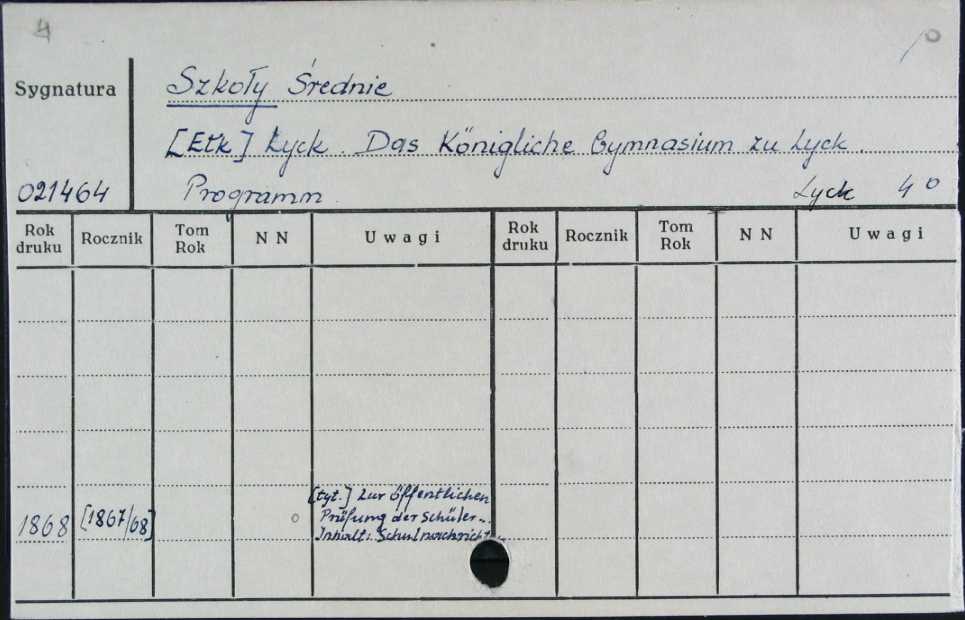 4
0
Sygnatura
Szkoły Średnie
[Ełk] Łyck. Das Königliche Gymnasium zu Lyck.
021464 Programm Lyck 4°
Rok druku Rocznik Tom Rok N N Uwagi Rok druku Rocznik Tom Rok N N Uwagi
[tyt.] Zur öffentlichen
1868 [1867/68] Prüfung der Schüler...
Inhalt: Schulnachricht